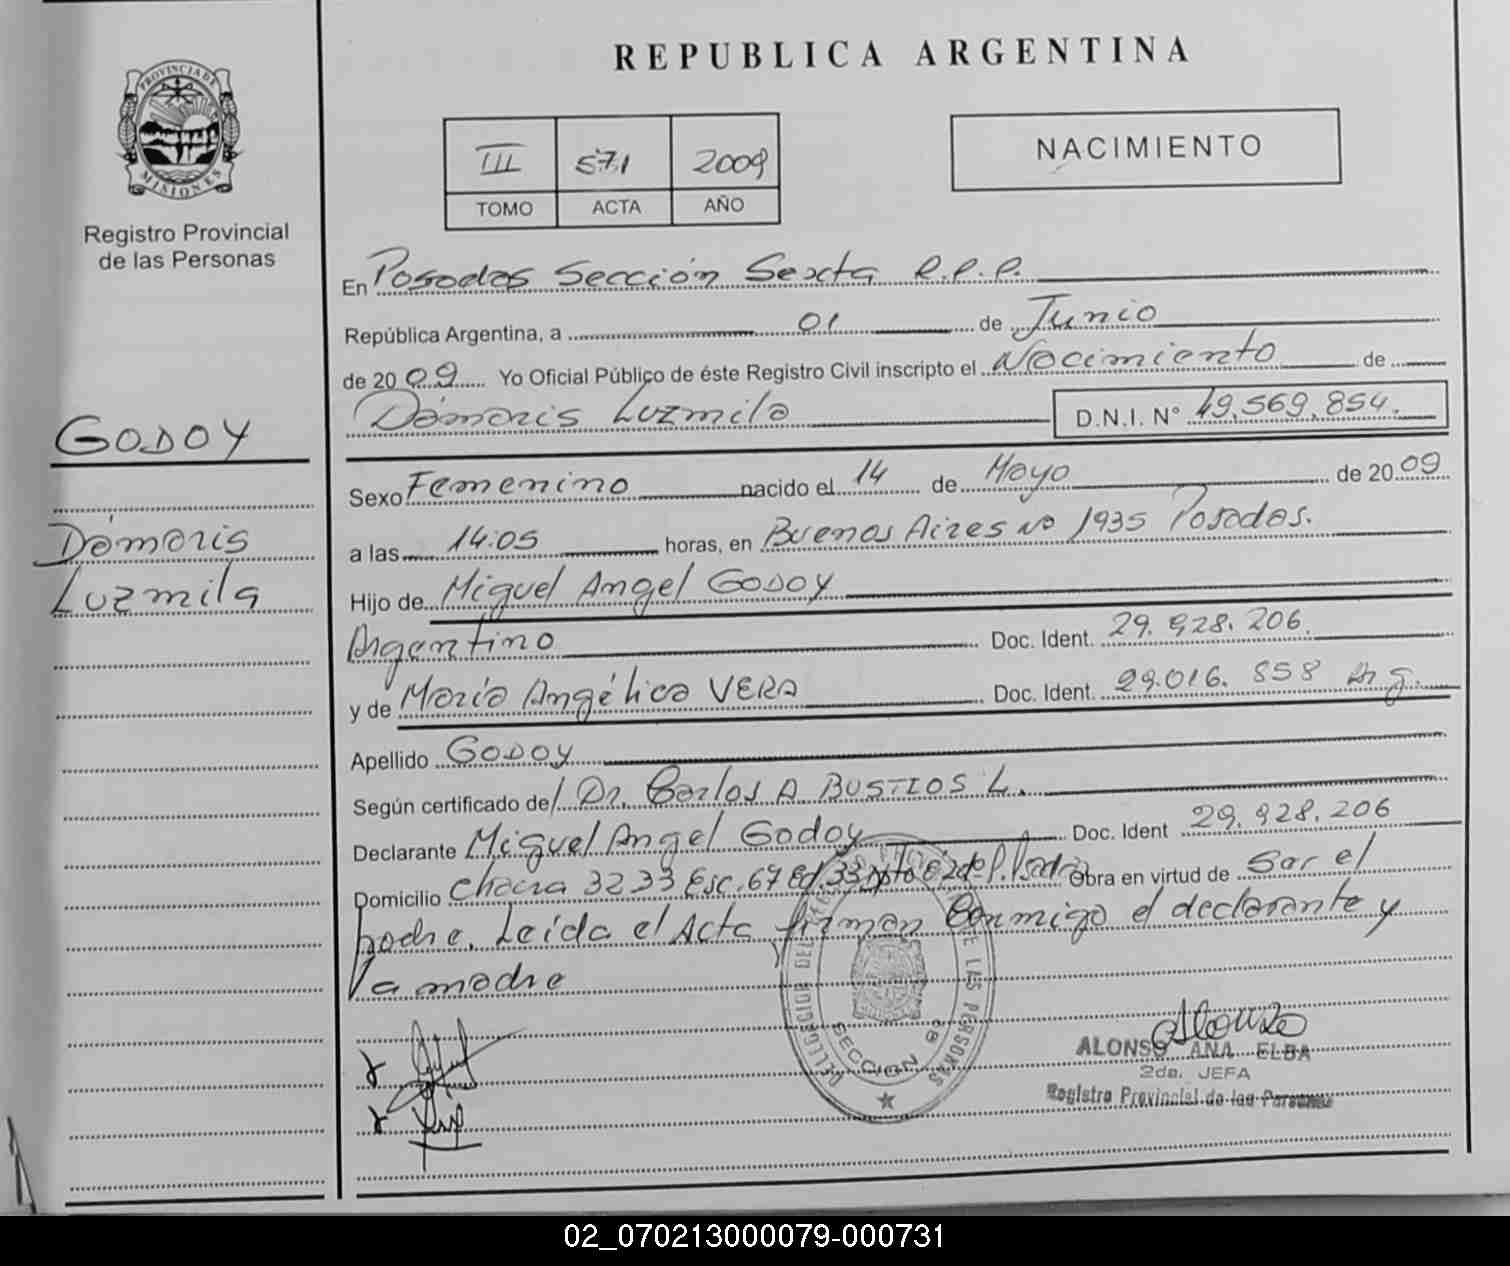 PROVINCIA DE
MISIONES
Registro Provincial
de las Personas
GODOY
Dámaris
Luzmila
REPUBLICA ARGENTINA
III 571 2009
TOMO ACTA AÑO
NACIMIENTO
En Posadas Sección Sexta R.P.P.
República Argentina, a 01 de Junio
de 2009 Yo Oficial Público de éste Registro Civil inscripto el Nacimiento de
Dámaris Luzmila D.N.I. N° 49.569.854.
Sexo Femenino nacido el 14 de Mayo de 2009
a las 14:05 horas, en Buenos Aires Nº 1935 Posadas.
Hijo de Miguel Angel GODOY
Argentino Doc. Ident. 29.928.206.
y de María Angélica VERA Doc. Ident. 29.016.858 Arg.
Apellido GODOY
Según certificado de Dr. Carlos A BUSTIOS L.
Declarante Miguel Angel Godoy Doc. Ident 29.928.206
Domicilio Chacra 32 33 Esc. 67 Ed. 33 Obra en virtud de Ser el
padre. Leída el Acta firman Conmigo el declarante y
la madre
DELEGACION DEL DE LAS PERSONAS
SECCION
ALONSO ANA ELBA
2da. JEFA
Registro Provincial de las Personas
02_070213000079-000731